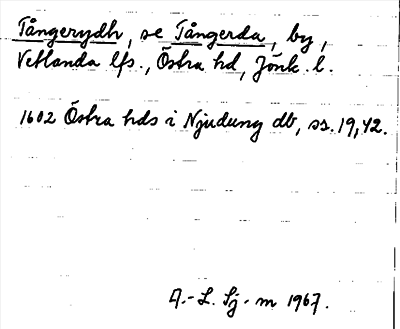 Tångerydh, se Tångerda, by,
Vetlanda lfs., Östra hd, Jönk. l.
1602 Östra hds i Njudung db, ss. 19, 42.
A.-L. Sj-m 1967.